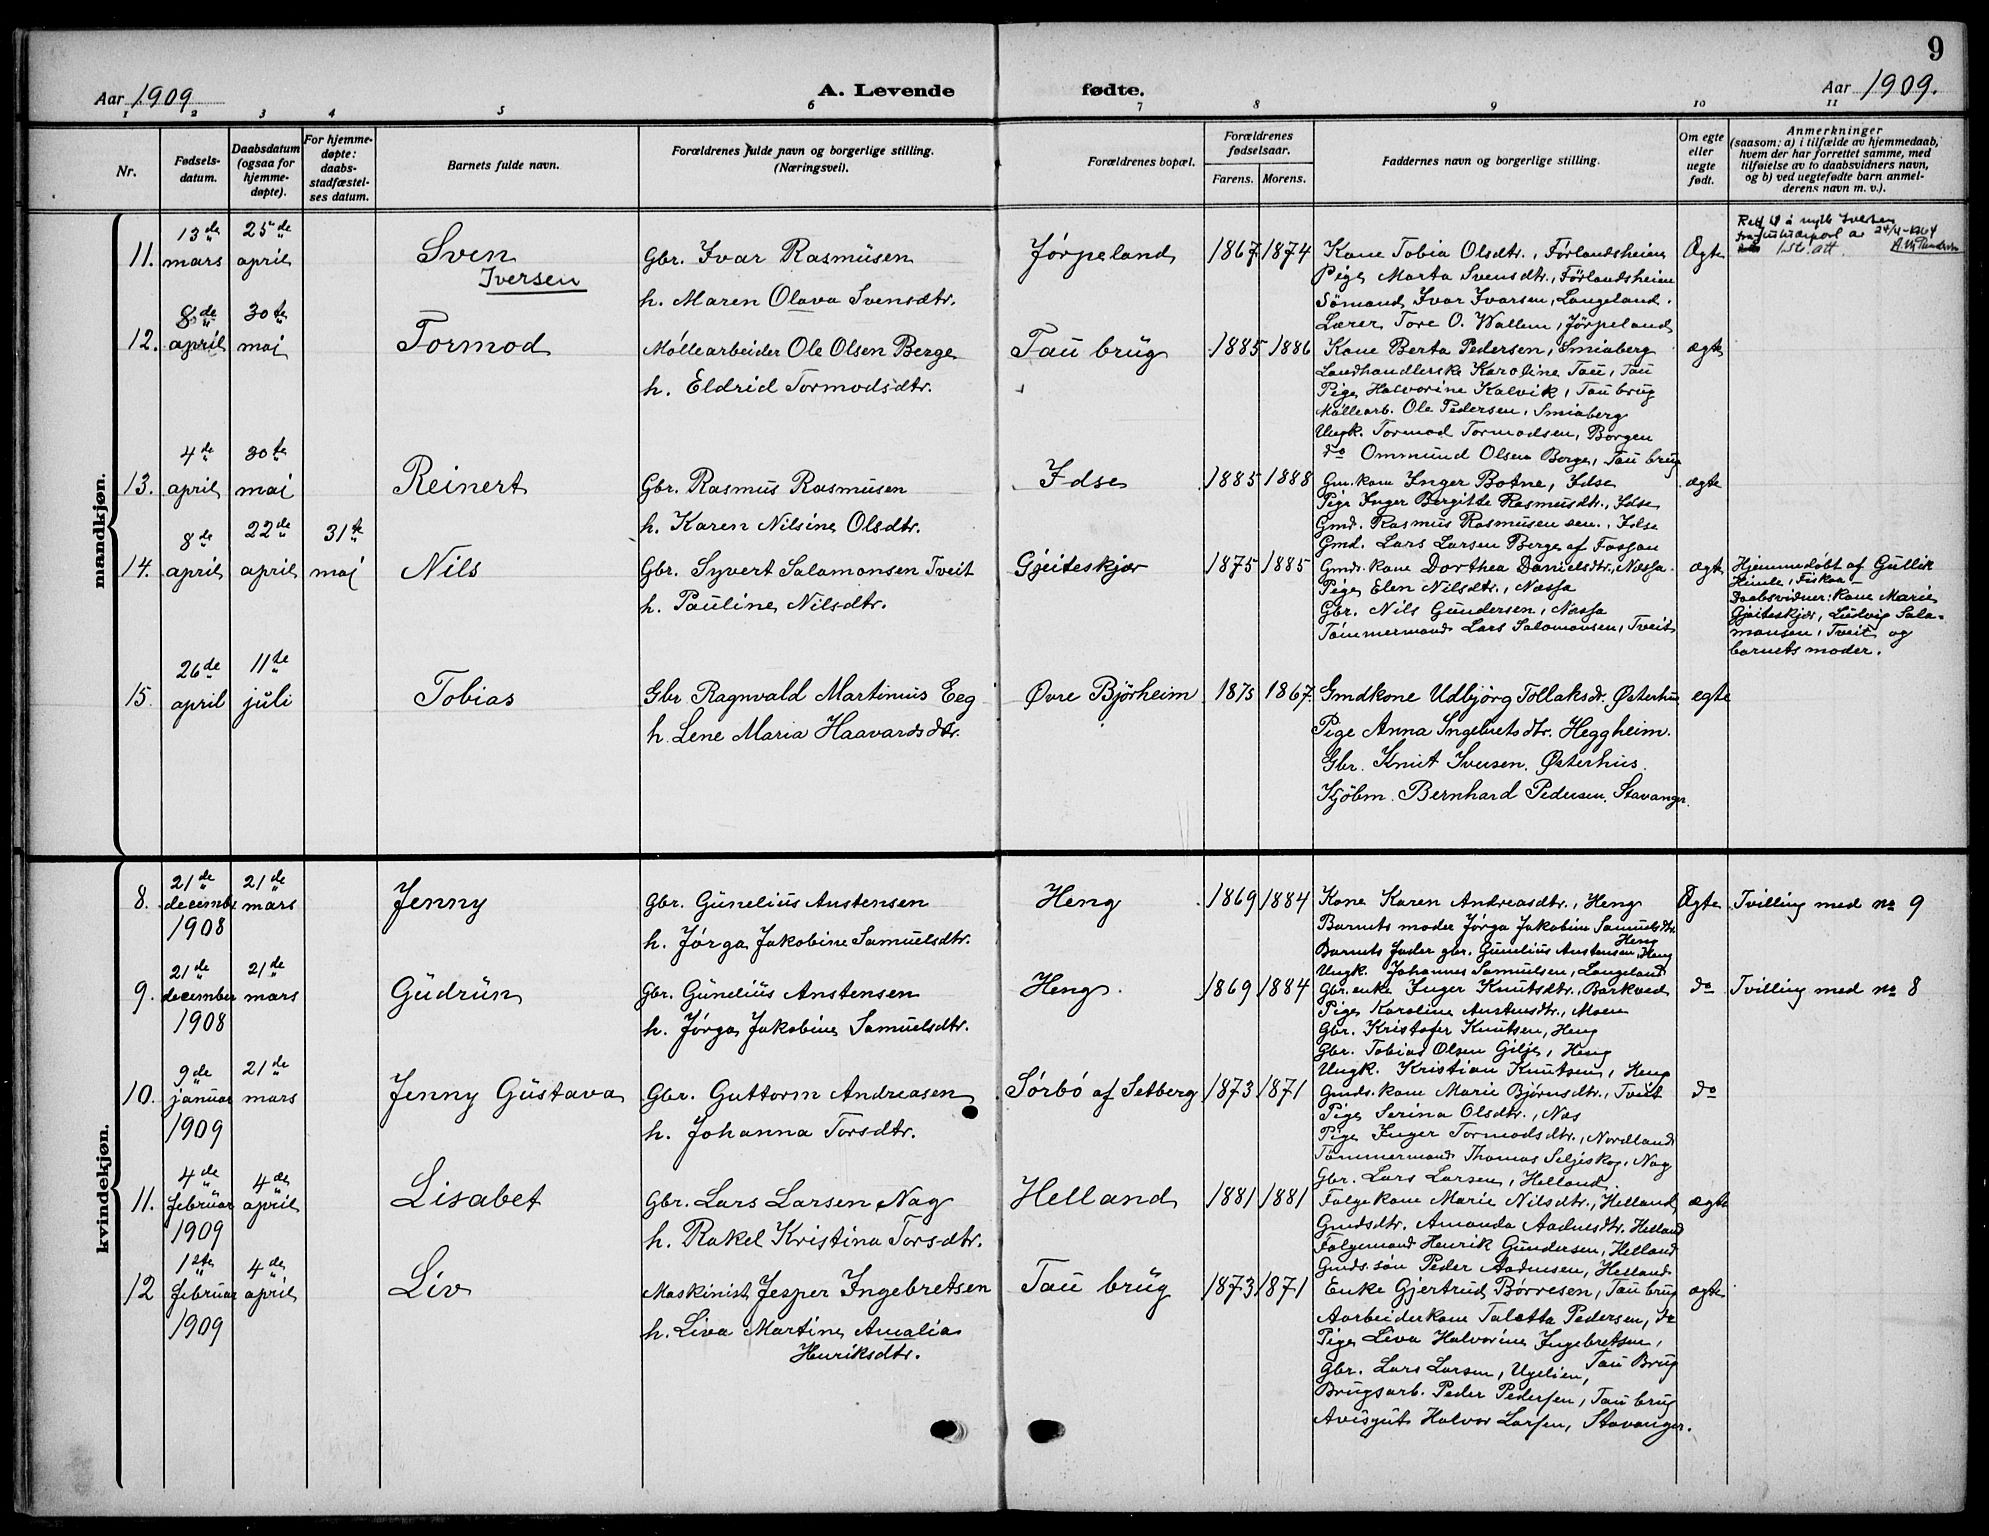 9
Aar 1909
A. Levende fødte.
Aar 1909.
1 2 3 4 5 6 7 8 9 10 11
Nr.
Fødsels-
datum.
Daabsdatum
(ogsaa for
hjemme-
døpte).
For hjemme-
døpte:
daabs-
stadfæstel-
ses datum.
Barnets fulde navn.
Forældrenes fulde navn og borgerlige stilling.
(Næringsvei).
Forældrenes bopæl.
Forældrenes
fødselsaar.
Farens. Morens.
Faddernes navn og borgerlige stilling.
Om egte
eller
uegte
født.
Anmerkninger
(saasom: a) i tilfælde av hjemmedaab,
hvem der har forrettet samme, med
tilføielse av to daabsvidners navn,
og b) ved uegtefødte barn anmel-
derens navn m. v.).
mandkjøn.
11.
13de
mars
25de
april
Sven
Iversen
Gbr. Ivar Rasmusen
h. Maren Olava Svensdtr.
Jørpeland
1867 1874
Kone Tobia Olsdtr., Førlandsheien
Pige Marta Svensdtr., Førlandsheien
Sömand Ivar Ivarsen, Langeland.
Lærer Tore O. Wallem, Jørpeland
Ægte
12.
8de
april
30te
mai
Tormod
Møllearbeider Ole Olsen Berge
h. Eldrid Tormodsdtr.
Tau brug
1885 1886
Kone Berta Pedersen, Smiaberg
Landhandlerske Karoline Tau, Tau
Pige Halvorine Kalvik, Tau brug
Møllearb. Ole Pedersen, Smiaberg
Ungk. Tormod Tormodsen, Borgen
do Ommund Olsen Berge, Tau brug
ægte
13.
4de
april
30te
mai
Reinert
Gbr. Rasmus Rasmusen
h. Karen Nilsine Olsdtr.
Idse
1885 1888
Gm.kone Inger Botne, Idse
Pige Inger Bergitte Rasmusdtr., Idse
Gmd. Rasmus Rasmusen sen., Idse
Gmd. Lars Larsen Berge af Fossan
ægte
14.
8de
april
22de
april
31te
mai
Nils
Gbr. Syvert Salamonsen Tveit
h. Pauline Nilsdtr.
Gjeiteskjær
1875 1885
Gmds. kone Dorthea Danielsdtr., Næssa.
Pige Elen Nilsdtr., Næssa
Gbr. Nils Gundersen, Næssa
Tömmermand Lars Salamonsen, Tveit
ægte
Hjemmedøbt af Gullik
Himle, Fiskaa –
Daabsvidner: kone Marie
Gjeiteskjær, Ludvig Sala-
monsen, Tveit og
barnets moder.
15.
26de
april
11te
juli
Tobias
Gbr Ragnvald Martinius Eeg
h. Lene Maria Haavardsdtr.
Øvre Bjørheim
1875 1867.
Gmdkone Udbjørg Tollaksdr. Østerhus
Pige Anna Ingebretsdtr. Heggheim.
Gbr. Knut Iversen. Østerhus.
Kjöbm. Bernhard Pedersen. Stavanger.
egte
kvindekjøn.
8.
21de
decembr
1908
21de
mars
Jenny
Gbr. Gunelius Anstensen
h. Jørga Jakobine Samuelsdtr.
Heng
1869 1884
Kone Karen Andreasdtr., Heng
Barnets moder Jørga Jakobine Samuelsdtr.
Heng
Barnets fader gbr. Gunelius Anstensen, Heng
Ungk. Johannes Samuelsen, Langeland
Ægte
Tvilling med no 9
9.
21de
december
1908
21de
mars
Gudrun
Gbr. Gunelius Anstensen
h. Jørga Jakobine Samuelsdtr.
Heng.
1869 1884
Gbr.enke Inger Knutsdtr., Barkved
Pige Karoline Anstensdtr., Moen
Gbr. Kristofer Knutsen, Heng
Gbr. Tobias Olsen Gilje, Heng
Ungk. Kristian Knutsen, Heng
do
Tvilling med no 8
10.
9de
januar
1909
21de
mars
Jenny Gustava
Gbr. Guttorm Andreasen
h. Johanna Torsdtr.
Sørbö af Setberg
1873 1871
Gmds. kone Marie Bjørnsdtr., Tveit
Pige Serina Olsdtr., Nas
Pige Inger Tormodsdtr., Nordland
Tømmermand Thomas Seljeskog, Nag
Gbr. Lars Larsen, Helland.
do
11.
4de
februar
1909
4de
april
Lisabet
Gbr. Lars Larsen Nag
h. Rakel Kristina Torsdtr.
Helland
1881 1881
Folgekone Marie Nilsdtr., Helland
Gmdsdtr. Amanda Aadnesdtr. Helland
Folgemand Henrik Gundersen, Helland
Gmds. søn Peder Aadnesen, Helland
ægte
12
1ste
februar
1909
4de
april
Liv
Maskinist Jesper Ingebretsen
h. Liva Martine Amalia
Henriksdtr.
Tau brug
1873 1871
Enke Gjertrud Børresen, Tau brug
Aarbeiderkone Taletta Pedersen, do
Pige Liva Halvorine Ingebretsen,
Tau Brug
Gbr. Lars Larsen, Ugelien,
Brugsarb. Peder Pedersen, Tau brug
Avisgut Halvor Larsen, Stavanger.
ægte